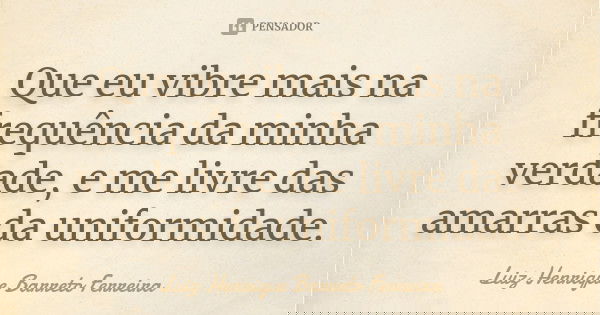 PENSADOR
Que eu vibre mais na
frequência da minha
verdade, e me livre das
amarras da uniformidade.
Luiz Henrique
Barreto Ferreira